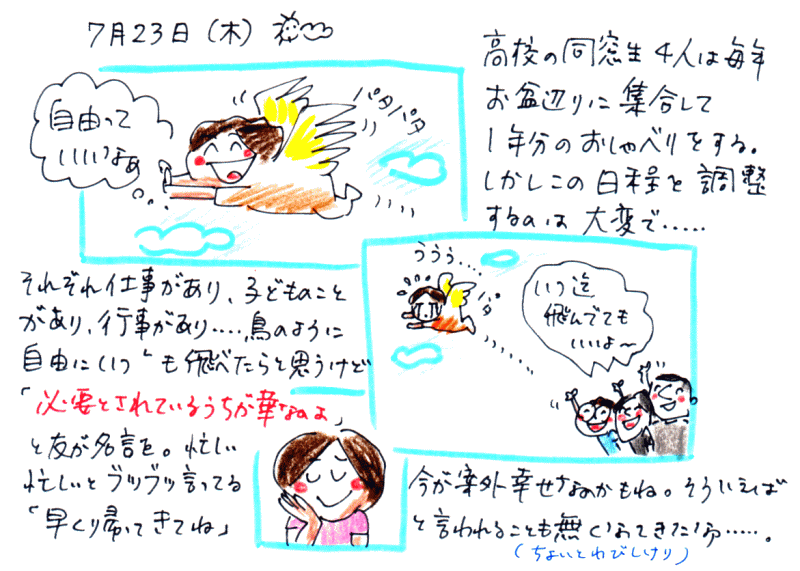 7月23日(木)
自由って
いいいなぁ
パタパタ
高校の同窓生4人は毎年
お盆辺りに集合して
1年分のおしゃべりをする。
しかしこの日程を調整
するのは大変で……
ううう....
パタ
いつ迄
飛んでても
いいよ〜
それぞれ仕事があり、子どものこと
があり、行事があり....鳥のように
自由にいつでも飛べたらと思うけど
「必要とされているうちが華なのよ」
と友が名言を。忙しい
忙しいとブツブツ言ってる
今が案外幸せなのかもね。そういえば
「早く帰ってきてね」
と言われることも無くなってきたわ……。
(ちょいとわびしけり)